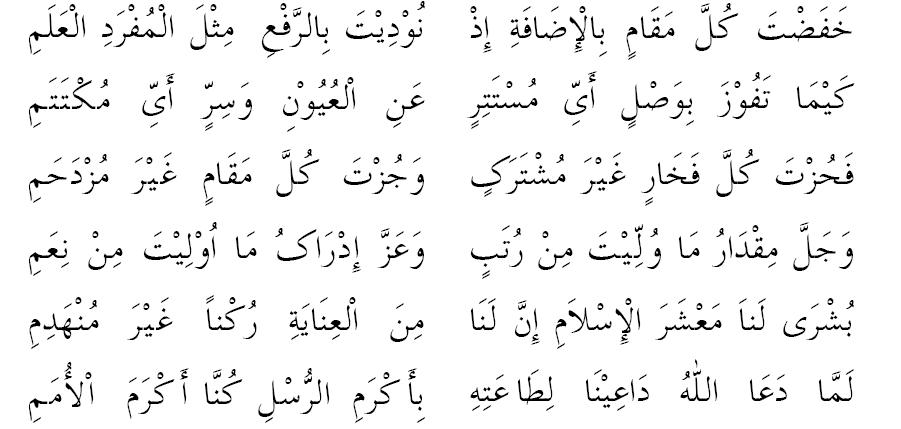 خَفَضْتَ كُلَّ مَقَامٍ بِالْإِضَافَةِ إِذْ نُوْدِيْتَ بِالرَّفْعِ مِثْلَ الْمُفْرَدِ الْعَلَمِ
كَيْمَا تَفُوْزَ بِوَصْلٍ أَيِّ مُسْتَتِرٍ عَنِ الْعُيُوْنِ وَسِرٍّ أَيِّ مُكْتَتَمِ
فَحُزْتَ كُلَّ فَخَارٍ غَيْرَ مُشْتَرَكٍ وَجُزْتَ كُلَّ مَقَامٍ غَيْرَ مُزْدَحَمِ
وَجَلَّ مِقْدَارُ مَا وُلِّيْتَ مِنْ رُتَبٍ وَعَزَّ إِدْرَاكُ مَا اُوْلِيْتَ مِنْ نِعَمِ
بُشْرَى لَنَا مَعْشَرَ الْإِسْلاَمِ إِنَّ لَنَا مِنَ الْعِنَايَةِ رُكْناً غَيْرَ مُنْهَدِمِ
لَمَّا دَعَا اللّٰهُ دَاعِيْنَا لِطَاعَتِهِ بِأَكْرَمِ الرُّسْلِ كُنَّا أَكْرَمَ الْأُمَمِ